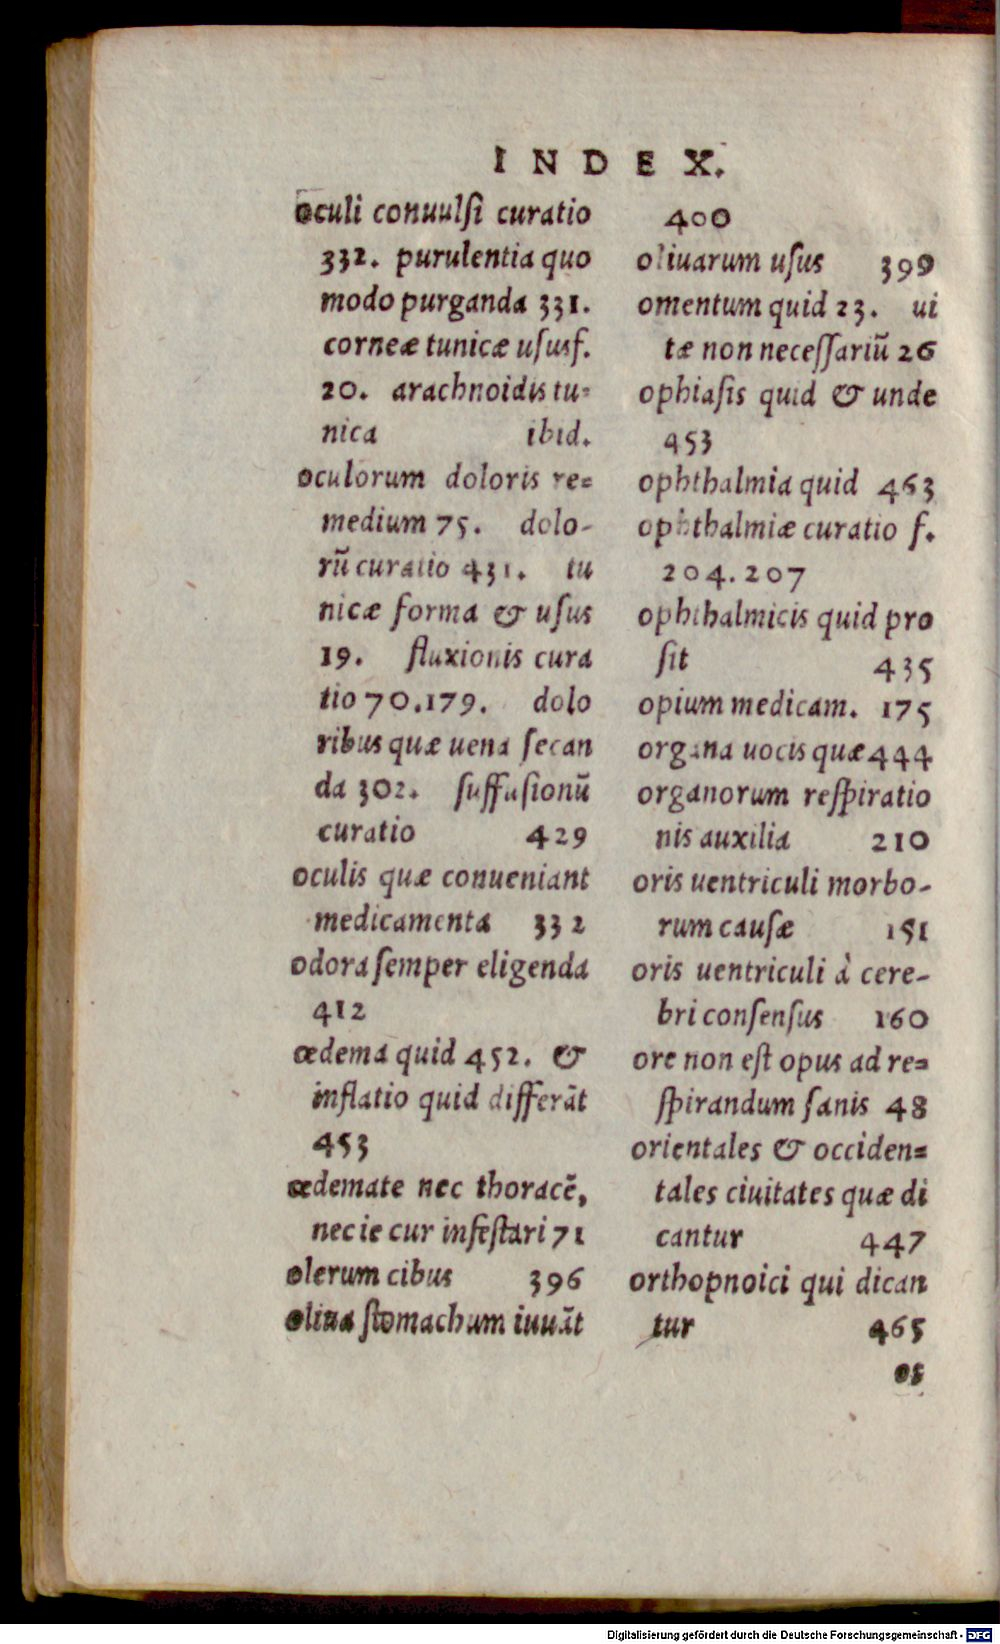 INDEX.
oculi conuulſi curatio
332. purulentia quo
modo purganda 331.
corneæ tunicæ uſus f.
20. arachnoidis tu=
nica ibid.
oculorum doloris re=
medium 75. dolo-
rũ curatio 431. tu
nicæ forma & uſus
19. fluxionis cura
tio 70.179. dolo
ribus quæ uena ſecan
da 302. ſuffuſionũ
curatio 429
oculis quæ conueniant
medicamenta 332
odora ſemper eligenda
412
œdema quid 452. &
inflatio quid differãt
453
œdemate nec thoracẽ,
nec ie cur infeſtari 71
olerum cibus 396
oliua ſtomachum iuuãt
400
oliuarum uſus 399
omentum quid 23. ui
tæ non neceſſariũ 26
ophiaſis quid & unde
453
ophthalmia quid 463
ophthalmiæ curatio f.
204.207
ophthalmicis quid pro
ſit 435
opium medicam. 175
organa uocis quæ 444
organorum reſpiratio
nis auxilia 210
oris uentriculi morbo-
rum cauſæ 151
oris uentriculi à cere-
bri conſenſus 160
ore non eſt opus ad re=
ſpirandum ſanis 48
orientales & occiden=
tales ciuitates quæ di
cantur 447
orthopnoici qui dican
tur 465
os
Digitalisierung gefördert durch die Deutsche Forschungsgemeinschaft - DFG